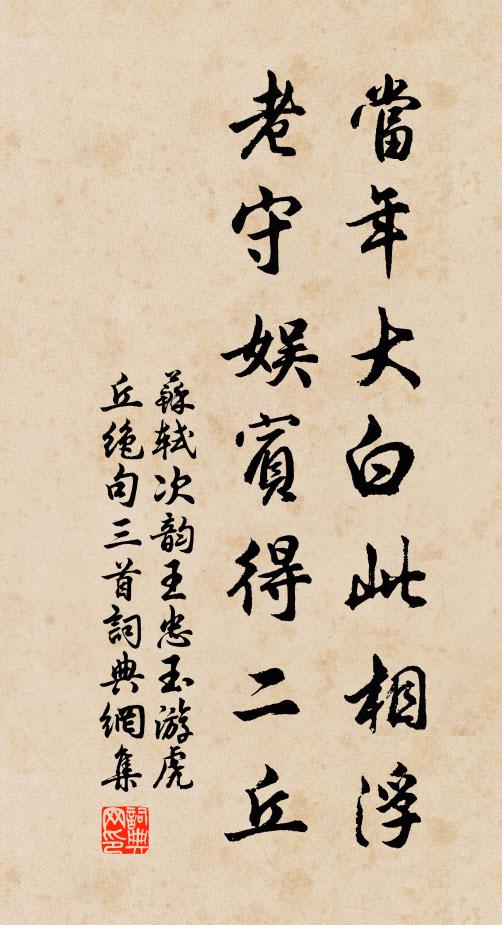 當年大白此相浮
老守娱賓得二丘
蘇軾次韵王忠玉游虎
丘绝句三首詞典網集
詞典
网印